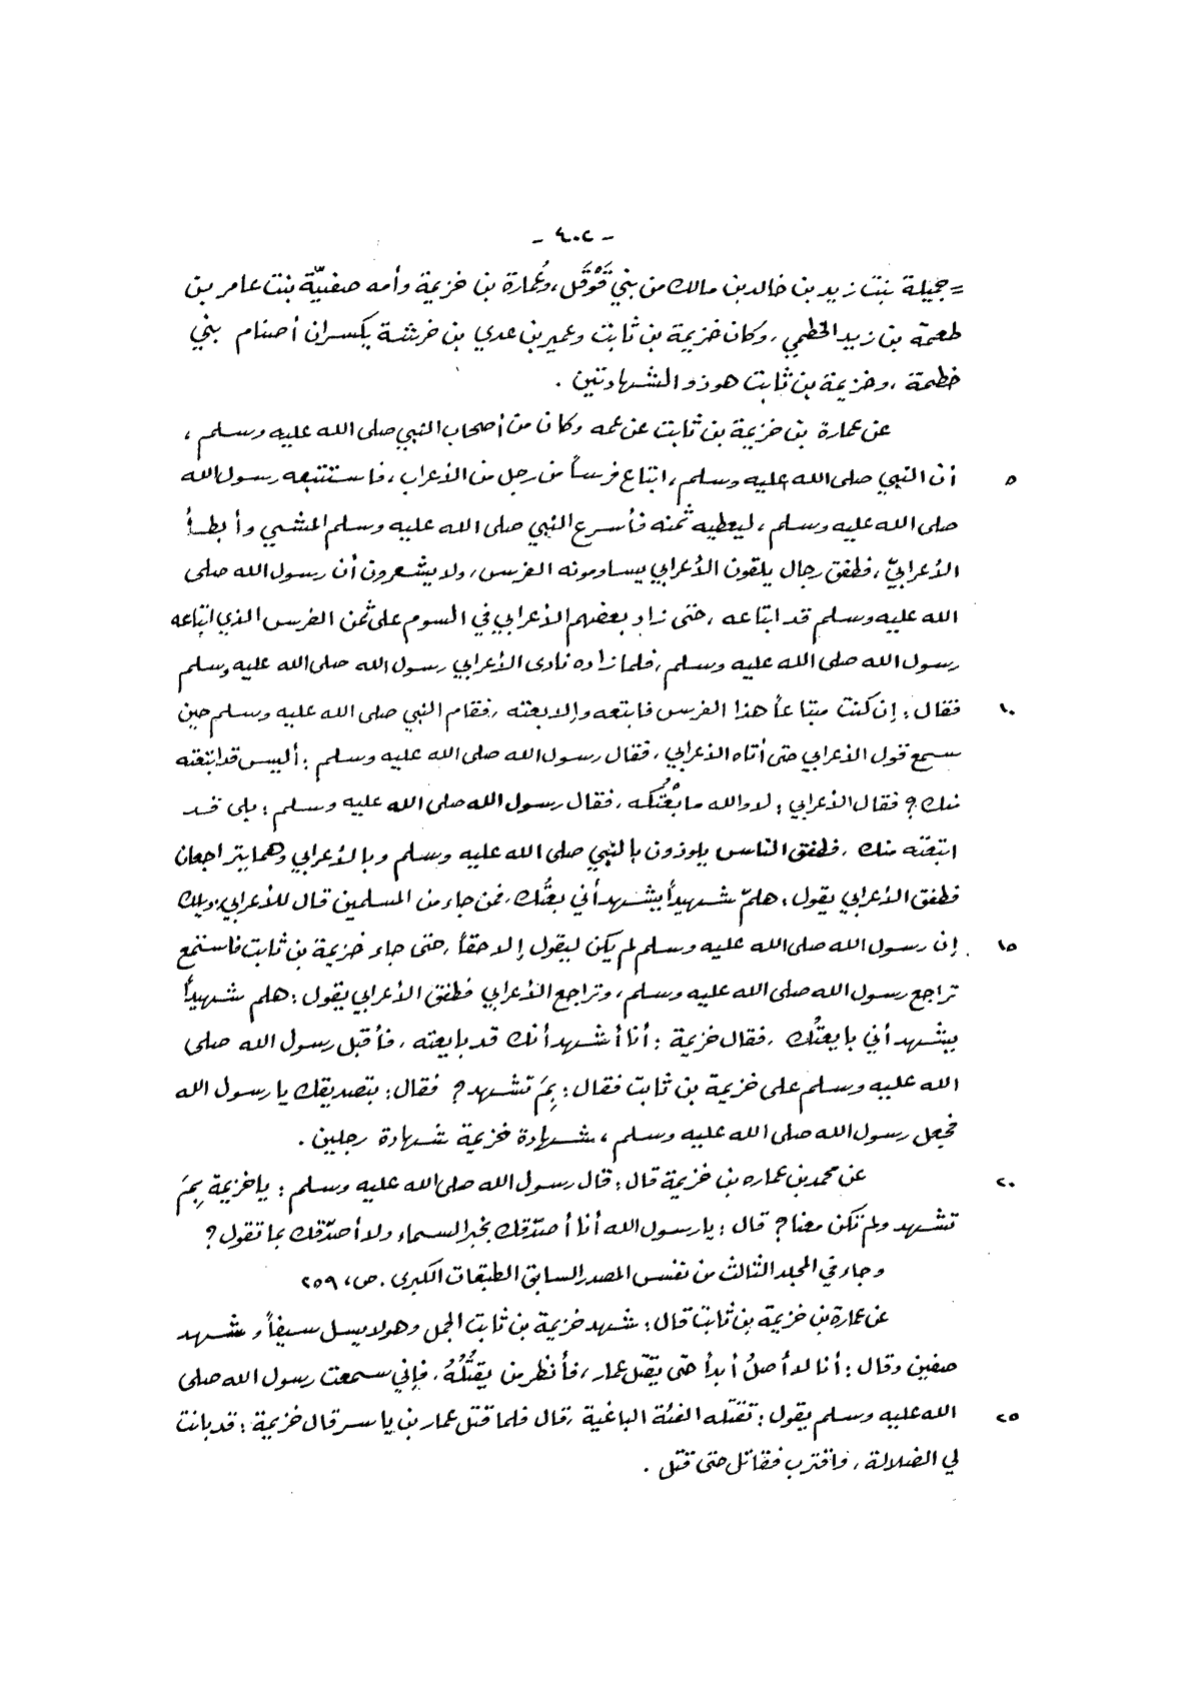 - ٤٠٢ -
= جميلة بنت زيد بن خالد بن مالك من بني قَوْقَل، وعُمارة بن خزيمة وأمه صفيّة بنت عامر بن
طعمة بن زيد الخطمي، وكان خزيمة بن ثابت وعمير بن عدي بن خرشة يكسران أصنام بني
خطمة، وخزيمة بن ثابت هو ذو الشهادتين .
عن عمارة بن خزيمة بن ثابت عن عمه وكان من أصحاب النبي صلى الله عليه وسلم ،
٥ أن النبي صلى الله عليه وسلم، ابتاع فرساً من رجل من الأعراب، فاستتبعه رسول الله
صلى الله عليه وسلم، ليعطيه ثمنه فأسرع النبي صلى الله عليه وسلم المشي وأبطأ
الأعرابيّ، فطفق رجال يلقون الأعرابي يساومونه الفرس، ولا يشعرون أن رسول الله صلى
الله عليه وسلم قد ابتاعه، حتى زاد بعضهم الأعرابي في السوم على ثمن الفرس الذي ابتاعه
رسول الله صلى الله عليه وسلم، فلما زاده نادى الأعرابي رسول الله صلى الله عليه وسلم
١٠ فقال: إن كنت مبتاعاً هذا الفرس فابتعه وإلا بعته، فقام النبي صلى الله عليه وسلم حين
سمع قول الأعرابي حتى أتاه الأعرابي، فقال رسول الله صلى الله عليه وسلم: أليس قد ابتعته
منك؟ فقال الأعرابي: لا والله ما بِعْتُكه، فقال رسول الله صلى الله عليه وسلم: بلى قد
ابتعته منك، فطفق الناس يلوذون بالنبي صلى الله عليه وسلم وبالأعرابي وهما يتراجعان
فطفق الأعرابي يقول: هلمّ شهيداً يشهد أني بعتُك، فمن جاء من المسلمين قال للأعرابي: ويلك
١٥ إن رسول الله صلى الله عليه وسلم لم يكن ليقول إلا حقاً، حتى جاء خزيمة بن ثابت فاستمع
تراجع رسول الله صلى الله عليه وسلم، وتراجع الأعرابي فطفق الأعرابي يقول: هلم شهيداً
يشهد أني بايعتُك، فقال خزيمة: أنا أشهد أنك قد بايعته، فأقبل رسول الله صلى
الله عليه وسلم على خزيمة بن ثابت فقال: بِمَ تشهد؟ فقال: بتصديقك يا رسول الله
فجعل رسول الله صلى الله عليه وسلم، شهادة خزيمة شهادة رجلين .
٢٠ عن محمد بن عماره بن خزيمة قال: قال رسول الله صلى الله عليه وسلم: يا خزيمة بِمَ
تشهد ولم تكن معنا؟ قال: يا رسول الله أنا أصدّقك بخبر السماء ولا أصدّقك بما تقول؟
وجاء في المجلد الثالث من نفس المصدر السابق الطبقات الكبرى. ص، ٢٥٩
عن عمارة بن خزيمة بن ثابت قال: شهد خزيمة بن ثابت الجمل وهو لا يسل سيفاً، وشهد
صفين وقال: أنا لا أصلُ أبداً حتى يقتل عمار، فأنظر من يقتُلُهُ، فإني سمعت رسول الله صلى
٢٥ الله عليه وسلم يقول: تقتله الفئة الباغية، قال فلما قتل عمار بن ياسر قال خزيمة: قد بانت
لي الضلالة، واقترب فقاتل حتى قتل .